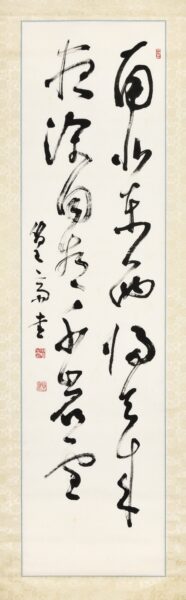 南北東西帰去来
夜深同看千岩雪